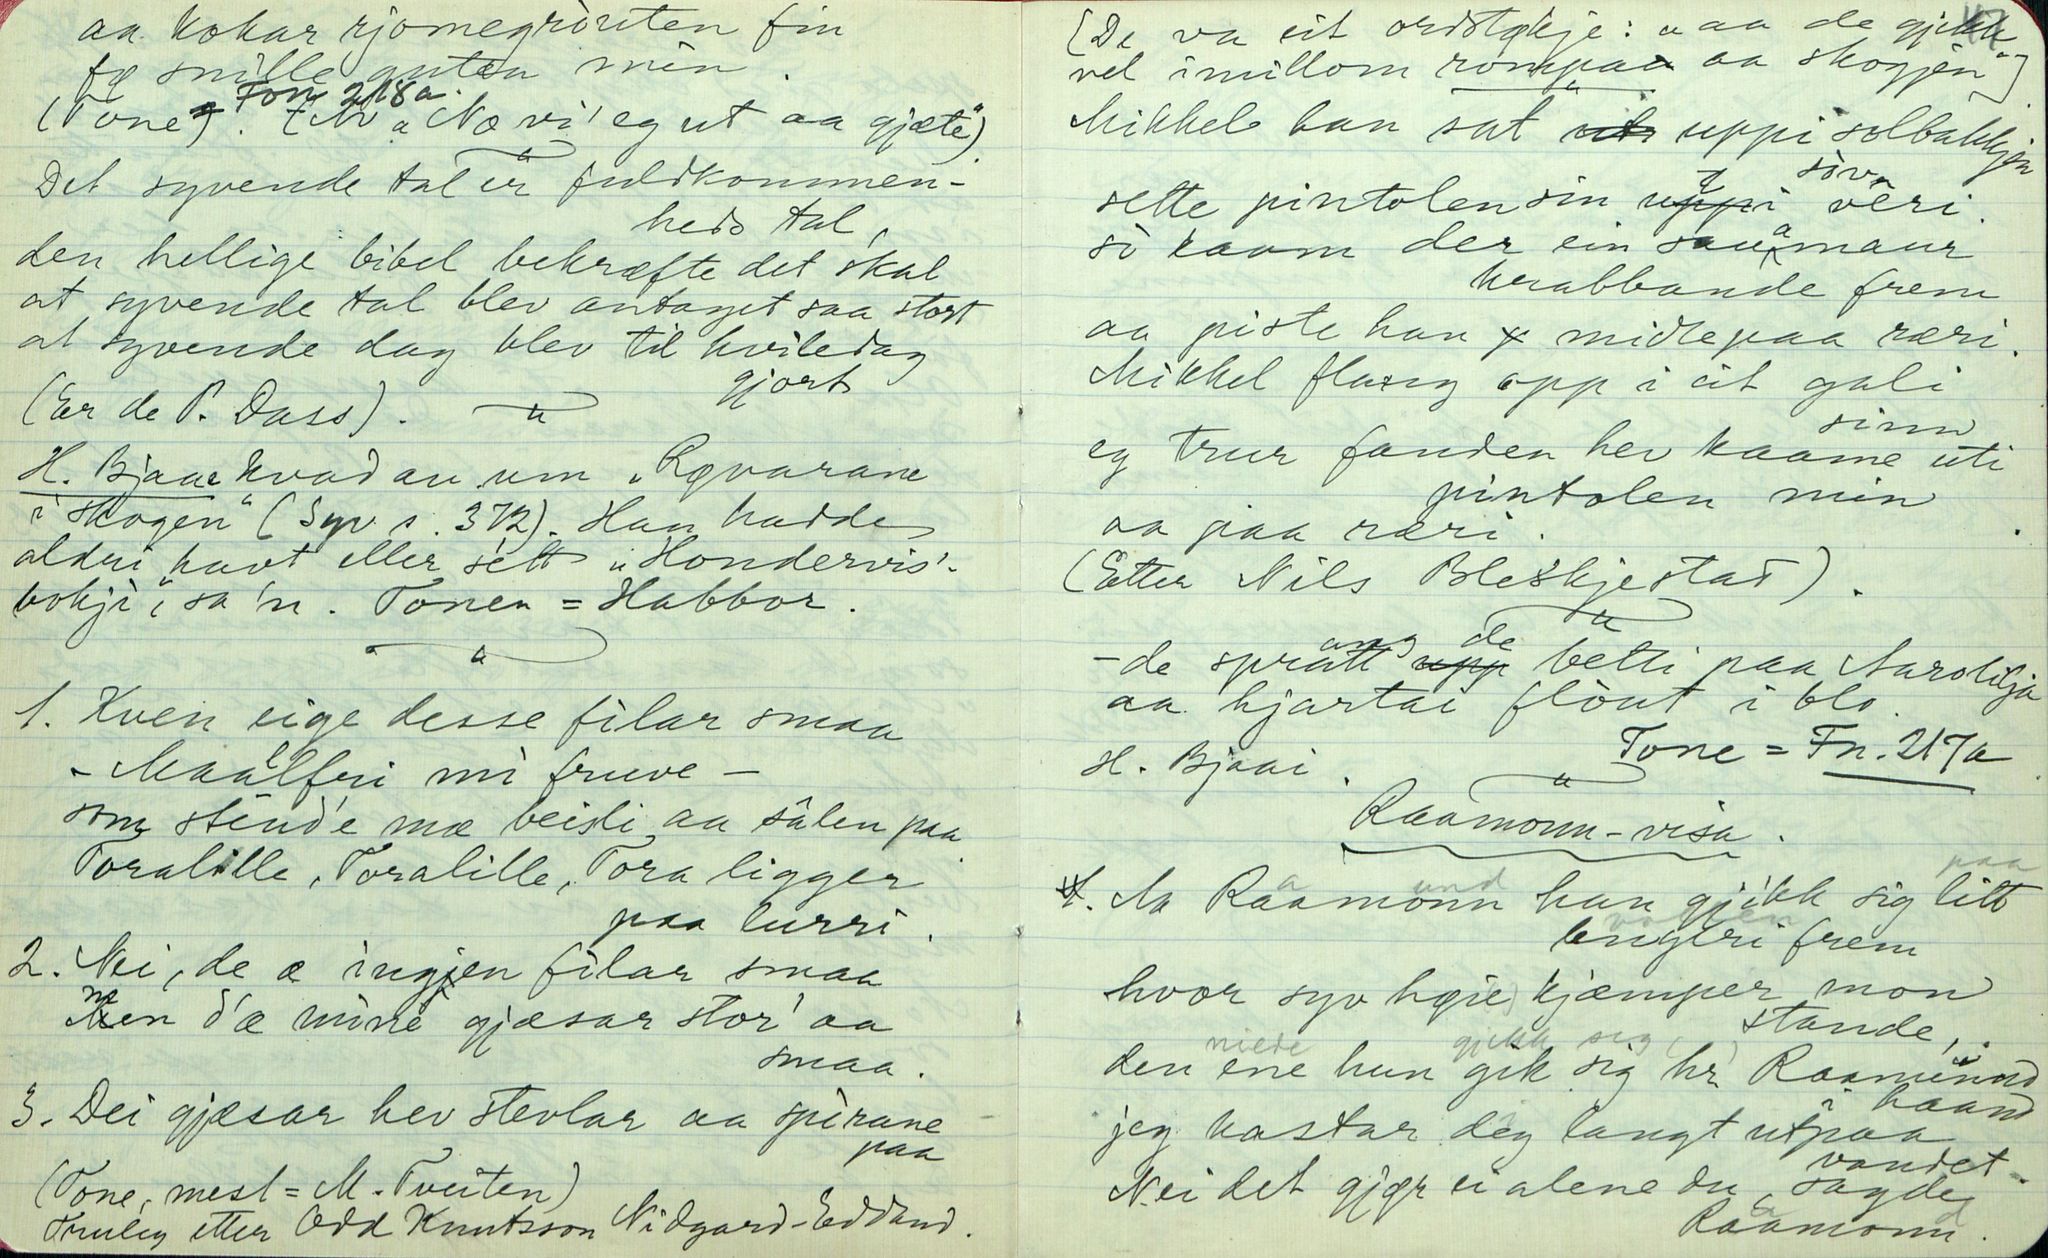 aa kokar rjomegròuten fin
fø snille guten min.
Fon 218a.
(Tone). (Mo "No vi' eg ut aa gjæte").
Det syvende tal er fuldkommen-
heds tal,
den hellige bibel bekræfte det skal
at syvende tal blev antaget saa stort
at syvende dag blev til hviledag
gjort
(Er de P. Dass).
H. Bjaae kvad au um "Røvarane
i skogen" (Syv s. 372). Han hadde
aldri havt eller sètt "Hondervis'-
bokji", sa 'n. Tonen = Habbor.
1. Kven eige desse filar smaa
- Maalfri mi fruve -
som stend'e mæ beisli aa sâlen paa
Toralille, Toralille, Tora ligger
paa lurri.
2. Nei, de æ ingjen filar smaa
men d'æ mine gjæsar stor' aa
smaa.
3. Dei gjæsar hev stevlar aa spirane
paa
(Tone, mest = M. Tveiten)
Truleg etter Odd Knutsson Nidgard-Eddand.
47
[De va eit ordstøkje: "aa de gjekk
vel imillom rompaa aa skogjen"]
Mikkel han sat uppi solbakkjen
sette pintolen sin i sòva veri.
sò kaam der ein sauamaur
krabbande frem
aa piste han midt paa ræri.
Mikkel flaug opp i eit gali
sinn
eg trur fanden hev kaame uti
pintolen min
aa paa ræri.
(Etter Nils Bleskjestad).
- de sprang de belti paa Aarolilja
aa hjartai flòut i blo.
H. Bjaai. Tone = Fn. 217a
Raamonn-visa.
1. Aa Raamonn han gjikk sig litt paa
lengeri frem
hvor syv høie kjæmper mon
stande,
den ene han gik sig hr. Raamund
haand
jeg kastar deg langt ut paa
vandet.
Nei det gjør ei alene du, sagde
Raamonn.